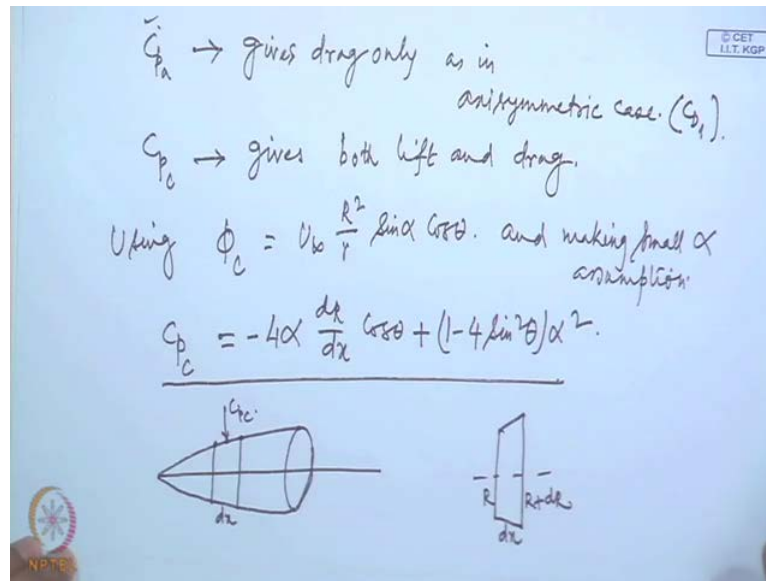 C_pa → gives drag only as in
© CET
I.I.T. KGP
axisymmetric case. (C_D1).
C_pc → gives both lift and drag.
Using ϕ_c = U∞ R²/r sinα cosθ. and making small α
assumption.
C_pc = -4α dR/dx cosθ + (1-4 sin²θ)α².
C_pc.
dx
R
R+dR
dx
NPTEL